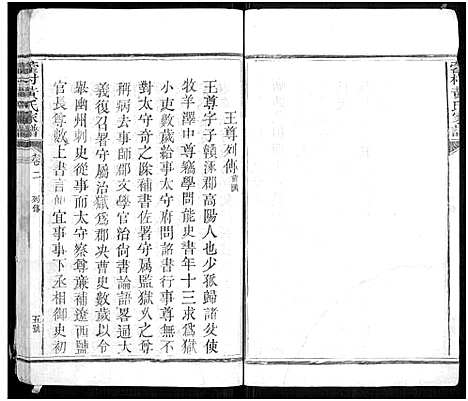 王尊列傳 前漢
王尊字子贛涿郡高陽人也少孤歸諸父使
牧羊澤中尊竊學問能史書年十三求爲獄
小吏數歲給事太守府問詔書行事尊無不
對太守奇之除補書佐署守属監獄久之尊
稱病去事師郡文學官治尚書論語畧通大
義復召署守属治獄爲郡决曹史數歲以令
舉幽州刺史從事而太守察尊廉補遼西鹽
官長尊數上書言便宜事事下丞相御史初
黄氏家譜
卷二
列傳
五號